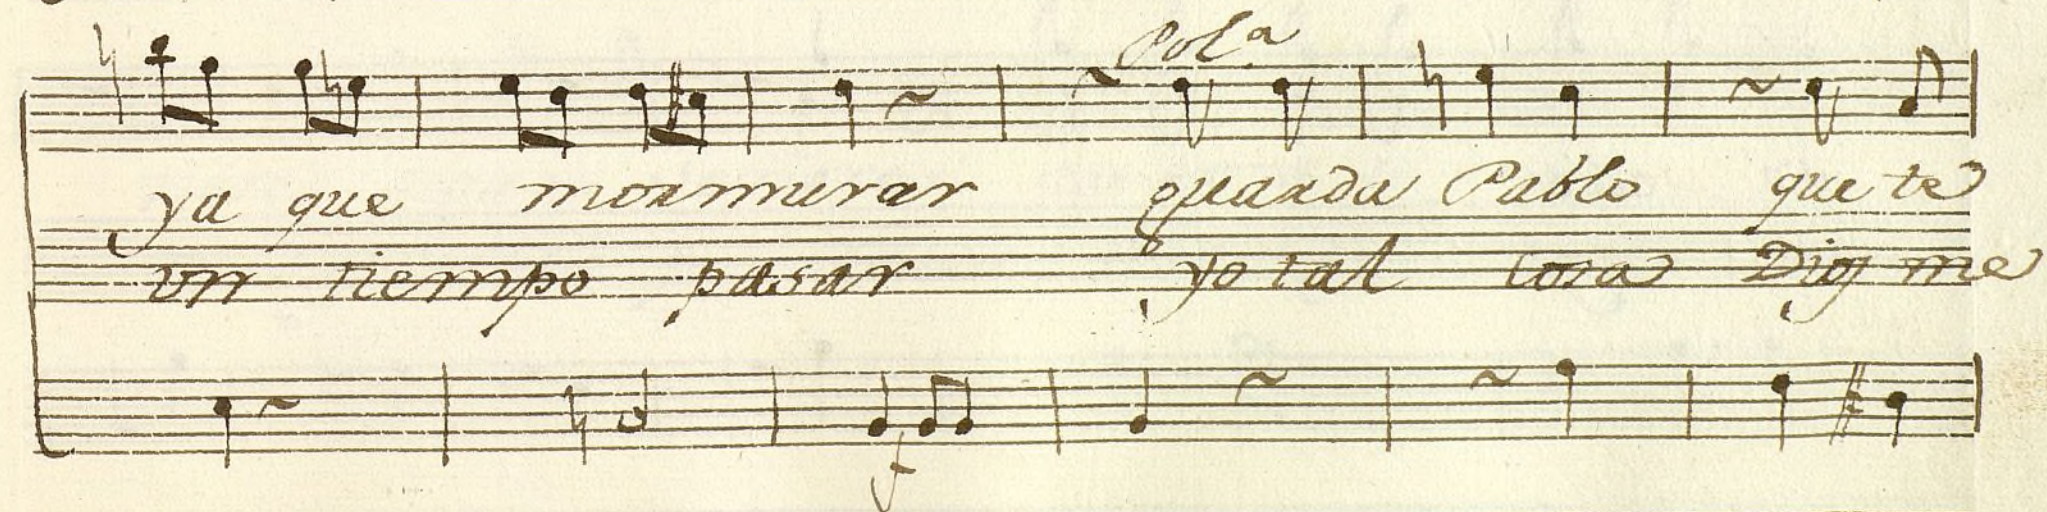 Pol.a
ya que mormurar guarda Pablo que te
un tiempo pasar yo tal cosa Dios me
f